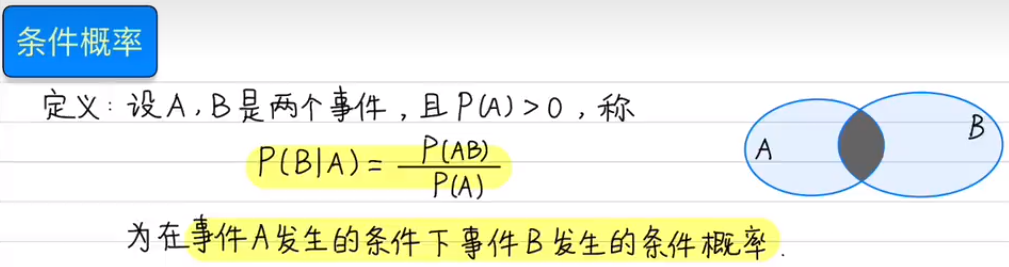 条件概率
定义：设A，B是两个事件，且P(A)>0，称
P(B|A)=P(AB)/P(A)
为在事件A发生的条件下事件B发生的条件概率.
A
B